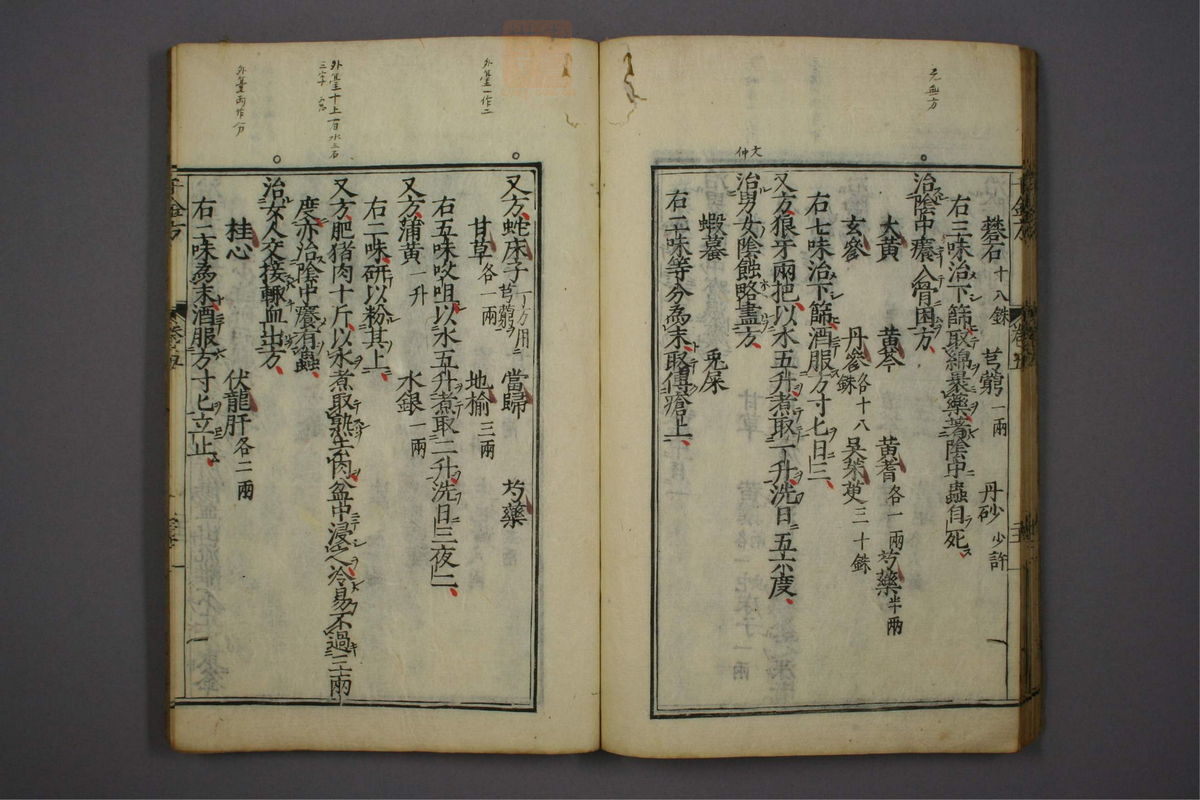 元無方
礬石十八銖 芎藭一兩 丹砂少許
右三味治下篩取綿裹藥著陰中蟲自死
治陰中癢入骨困方
大黃 黃芩 黃耆各一兩 芍藥半兩
玄參 丹參各十八銖 吳茱萸三十銖
右七味治下篩酒服方寸匕日三
又方狼牙兩把以水五升煮取一升洗日五六度
文仲
治男女陰蝕略盡方
蝦蟇 兎屎
右二味等分爲末取傅瘡上
外臺一作二
又方蛇床子 當歸 芍藥
甘草各一兩 地榆三兩
右五味㕮咀以水五升煮取二升洗日三夜二
又方蒲黃一升 水銀一兩
右二味研以粉其上
外臺十上有水三石三字
又方肥猪肉十斤以水煮取熟去肉盆中浸之冷易不過三兩
度亦治陰中癢有蟲
治女人交接輒血出方
外臺兩作分
桂心 伏龍肝各二兩
右二味爲末酒服方寸匕立止
千金方